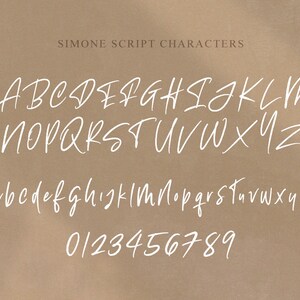 SIMONE SCRIPT CHARACTERS
ABCDEFGHIJKLM
NOPQRSTUVWXYZ
abcdefghijklmnopqrstuvwxy
0123456789